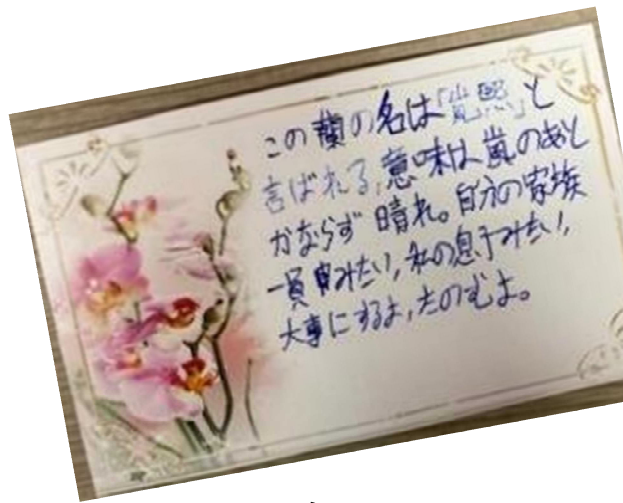 この蘭の名は「嵐熙」と
言ばれる,意味は嵐のあと
かならず晴れ。自分の家族
一員みたい,私の息子みたい,
大事にするよ,たのむよ。